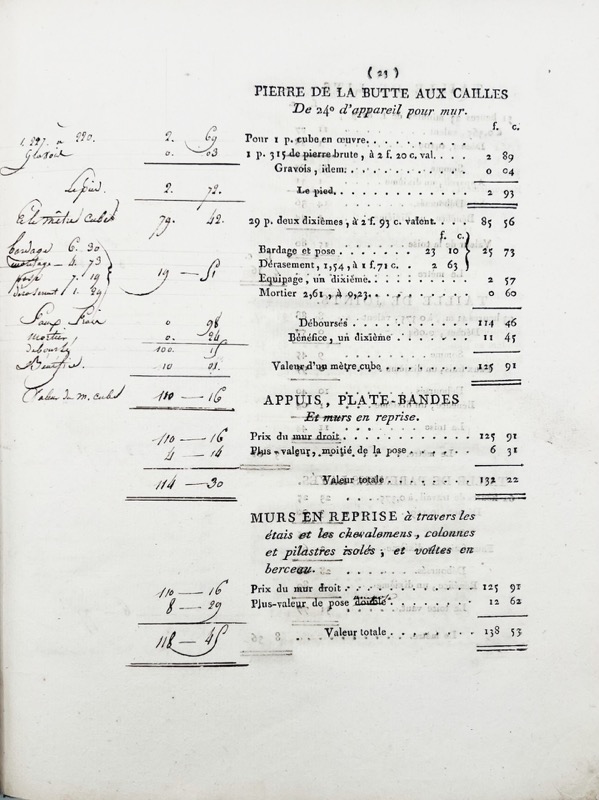 ( 23 )
PIERRE DE LA BUTTE AUX CAILLES
De 240 d'appareil pour mur.
f. c.
1. 227. à 220. 2. 69 Pour 1 p. cube en œuvre.
Gravois 0. 03 1 p. 315 de pierre brute, à 2 f. 20 c. val. 2 89
Gravois, idem. 0 04
Le pied. 2. 72. Le pied. 2 93
Et le mètre cube 79. 42. 29 p. deux dixièmes, à 2 f. 93 c. valent. 85 56
f. c.
bardage 6. 30
montage 4. 73 Bardage et pose 23 10 } 25 73
pose 7. 19 } 19 — 51 Dérasement, 1,54, à 1 f. 71 c. 2 63
dérasement 1. 29 Equipage, un dixième 2 57
Mortier 2,61, à 0,23. 0 60
Faux Frais 0 98 Déboursés 114 46
Mortier, 0. 24 Bénéfice, un dixième 11 45
déboursés 100. 15
Bénéfice. 10 01. Valeur d'un mètre cube 125 91
Valeur du m. cube 110 — 16
APPUIS, PLATE-BANDES
Et murs en reprise.
110 — 16 Prix du mur droit 125 91
4 — 14 Plus-valeur, moitié de la pose 6 31
114 — 30 Valeur totale 132 22
MURS EN REPRISE à travers les
étais et les chevalemens, colonnes
et pilastres isolés ; et voûtes en
berceau.
110 — 16 Prix du mur droit 125 91
8 — 29 Plus-valeur de pose double 12 62
118 — 45 Valeur totale 138 53